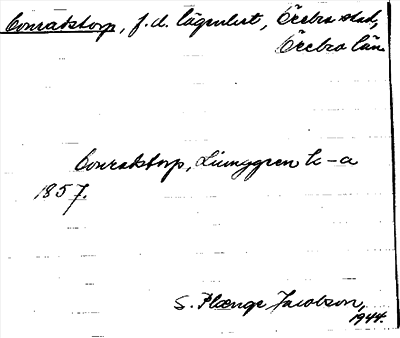 Conradstorp, f.d. lägenhet, Örebro stad,
Örebro län
Conradstorp, Ljunggren k-a
1857.
S. Plænge Jacobson,
1944.